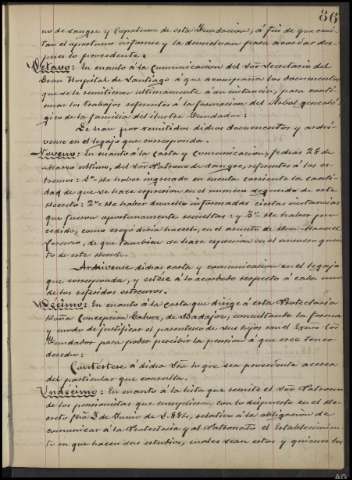 86
no de sangre y Capellan de esta Fundacion, á fin de que emi-
tan el oportuno informe y lo devuelvan para acordar des-
pues lo procedente.
Octavo: En cuanto á la Comunicacion del Sor Secretario del
Gran Hospital de Santiago á que acompaña los documentos
que se le remitieron ultimamente á su instancia, para conti-
nuar los trabajos referentes á la formacion del Arbol genealó-
gico de la familia del ilustre Fundador:
Se dan por remitidos dichos documentos y archí-
vense en el legajo que corresponda.
Noveno: En cuanto á la carta y comunicacion, fechas 28 de
Marzo último, del Sor Patrono de sangre, referentes á los ex-
tremos: 1º de haber ingresado en cuenta corriente la canti-
dad de que se hace espresion en el número segundo de este
decreto: 2º de haber devuelto informadas ciertas instancias
que fueron oportunamente remitidas: y 3º de haber pro-
cedido, como creyó debia hacerlo, en el asunto de Don Manuel
de que tambien se hace espresion en el número quin-
to de este decreto.
Archívense dichas carta y comunicacion en el legajo
que corresponda, y estése á lo acordado respecto á cada uno
de los referidos extremos.
Décimo: En cuanto á la carta que dirige á esta Protectoría
Doña Concepcion de Badajoz, consultando la forma
y modo de justificar el parentesco de sus hijos con el Excmo Sor
Fundador para poder percibir la pension á que cree tener
derecho:
Contéstese á dicha Sra lo que sea procedente acerca
del particular que consulta.
Undécimo: En cuanto á la lista que remite el Sor Patrono
de los pensionistas que cumplieron con lo dispuesto en el de-
creto fha 2 de Junio de 1.881, relativo á la obligacion de
comunicar á la Protectoría y al Patronato el Establecimien-
to en que hacen sus estudios, cuales sean estos y quienes los